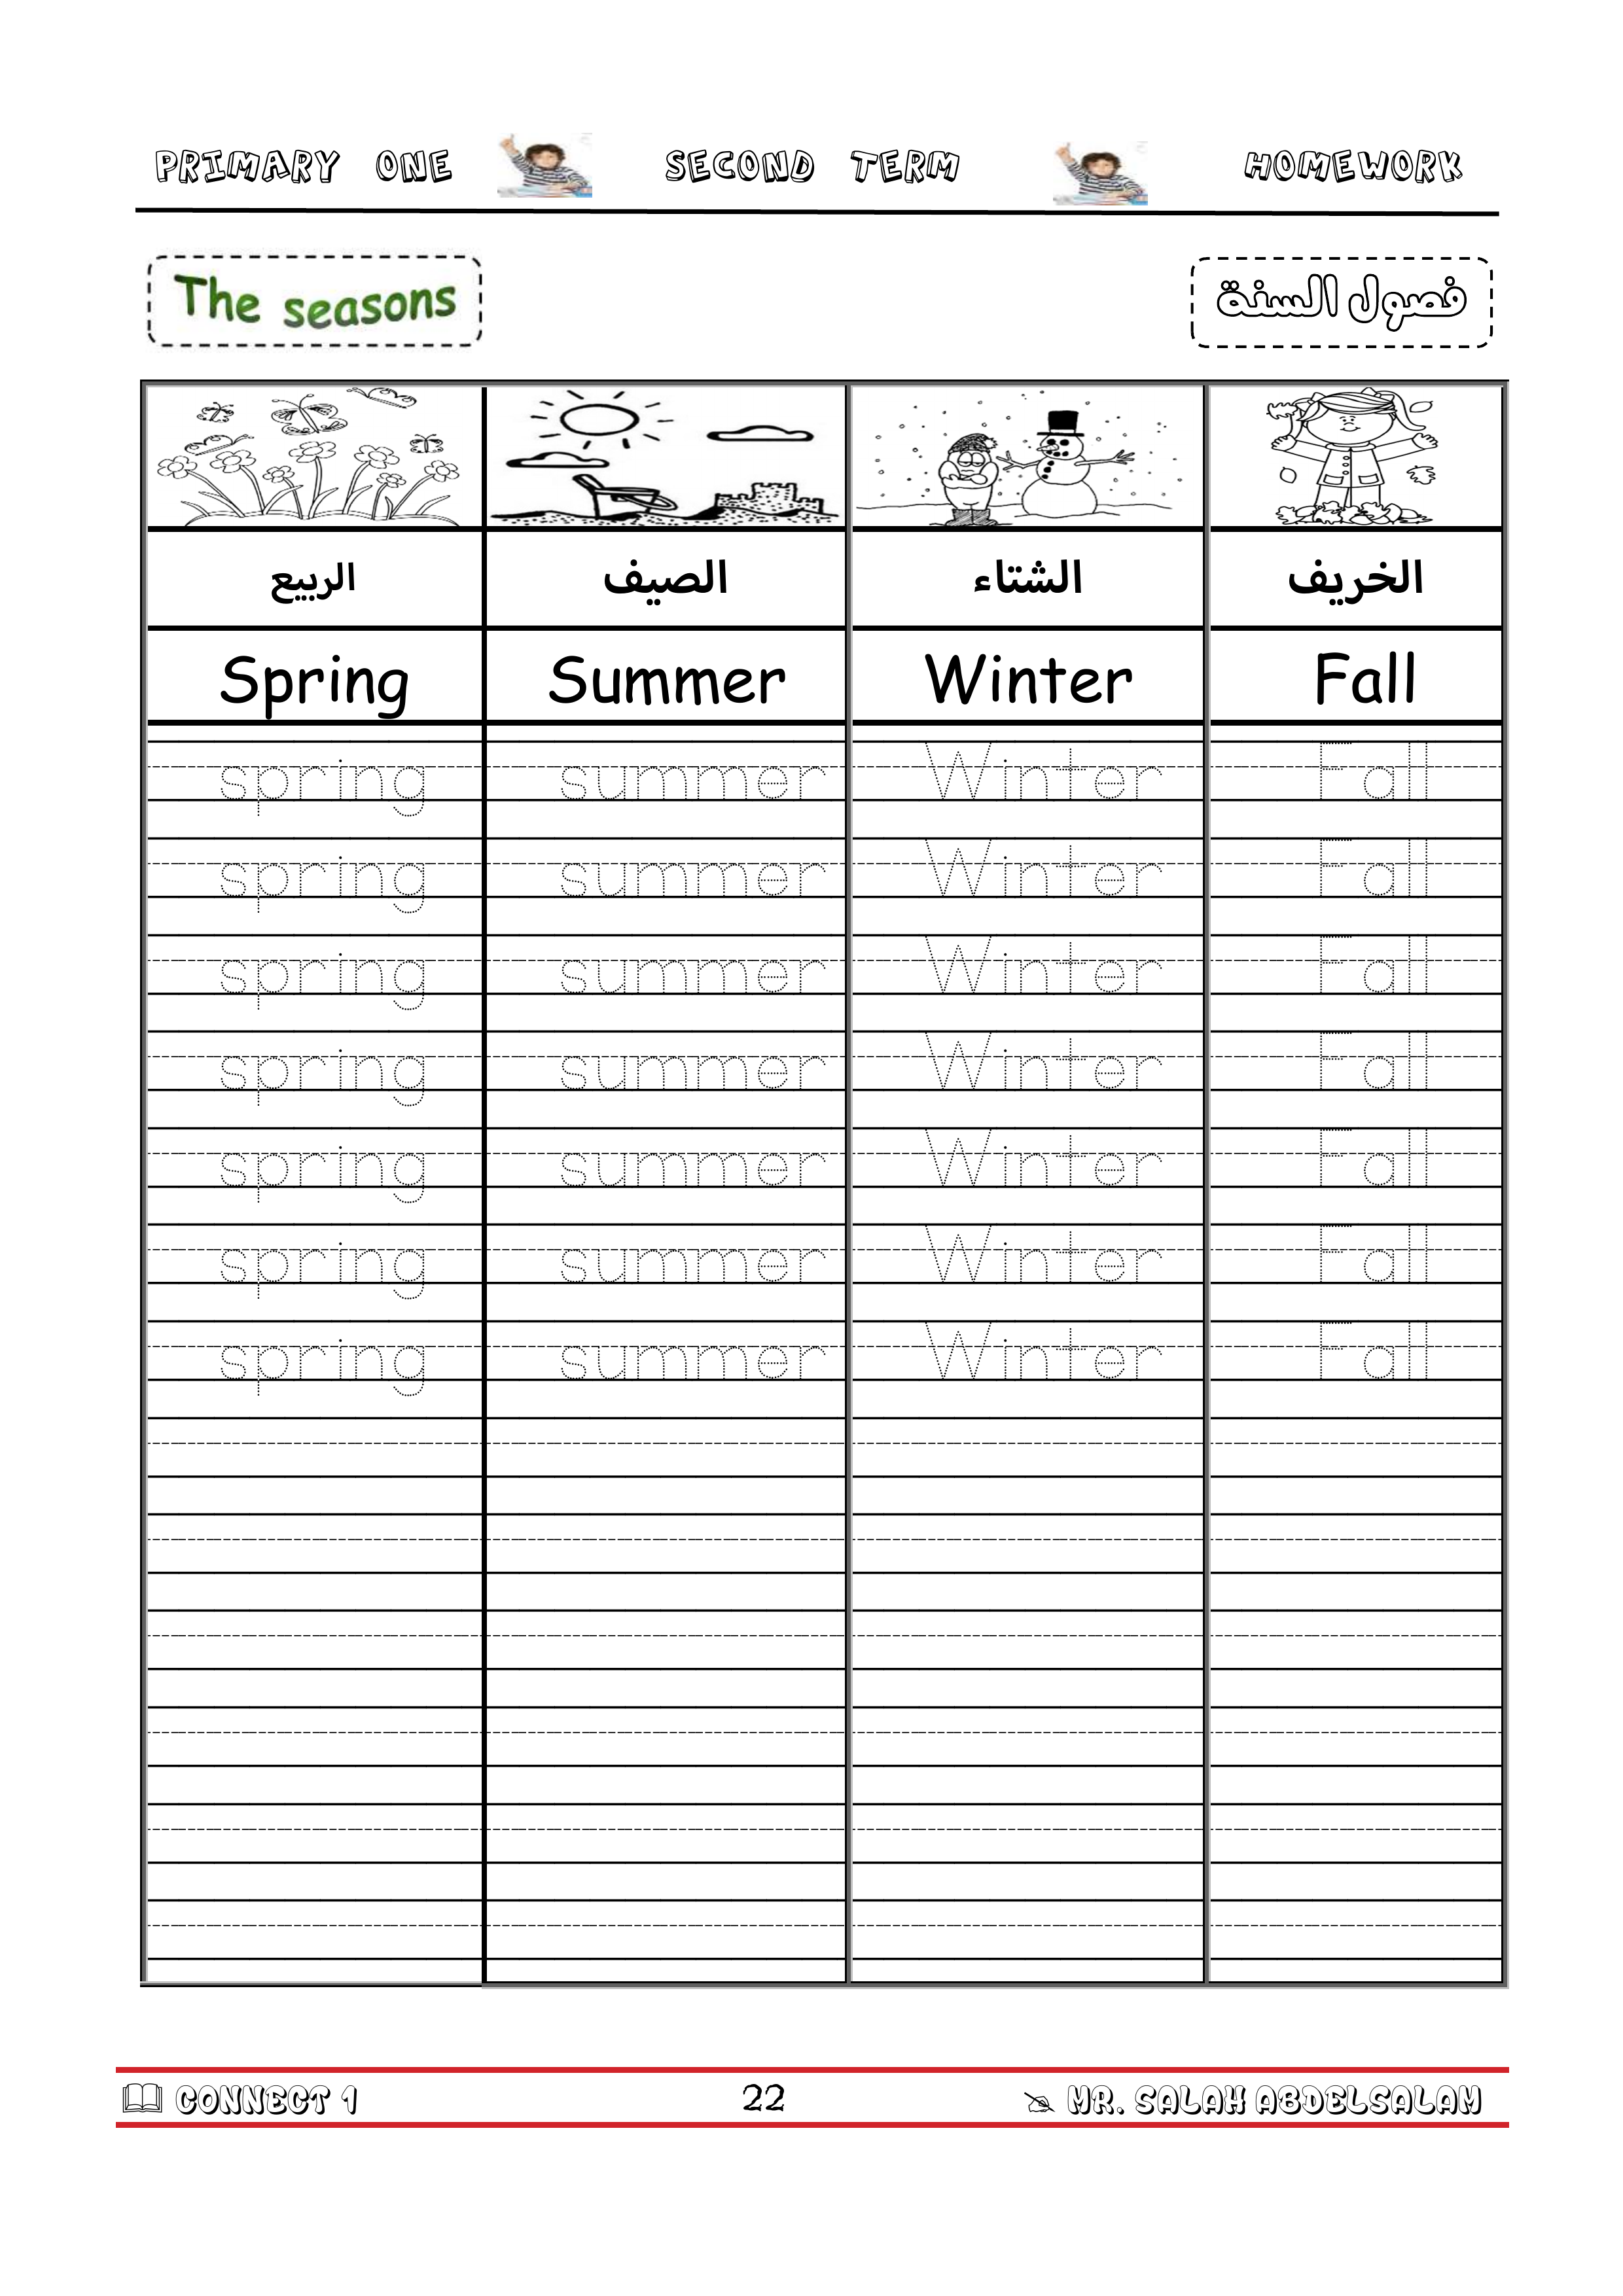 PRIMARY ONE SECOND TERM HOMEWORK
The seasons فصول السنة
الربيع الصيف الشتاء الخريف
Spring Summer Winter Fall
spring summer Winter Fall
spring summer Winter Fall
spring summer Winter Fall
spring summer Winter Fall
spring summer Winter Fall
spring summer Winter Fall
spring summer Winter Fall
CONNECT 1 22 MR. SALAH ABDELSALAM